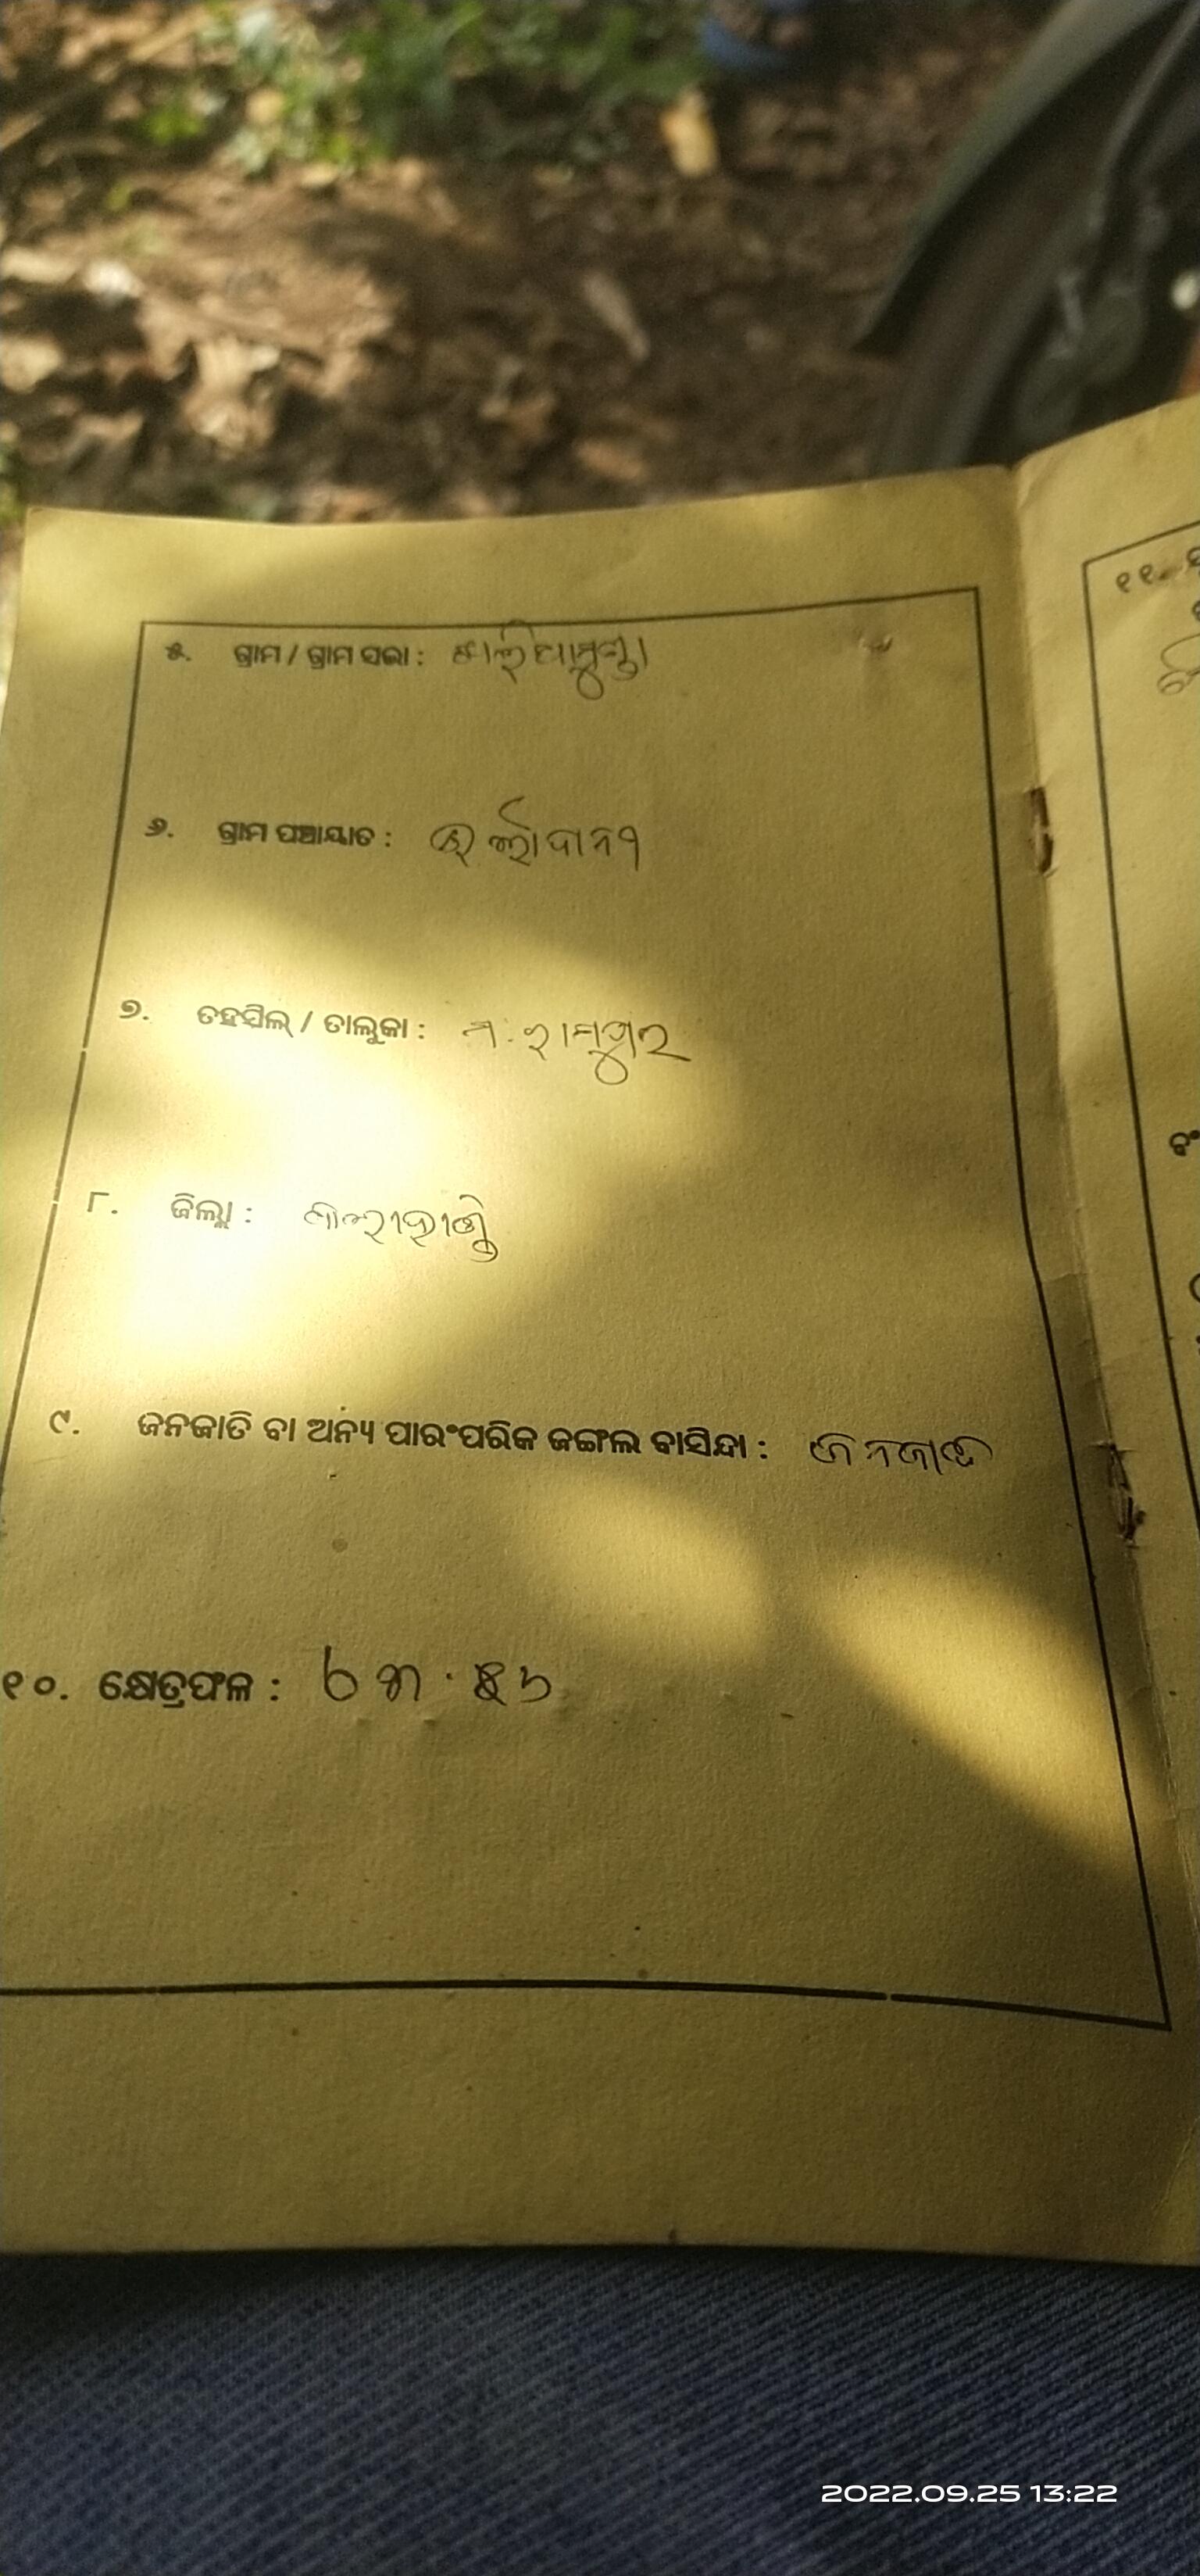 ୫. ଗ୍ରାମ / ଗ୍ରାମ ସଭା :
୬. ଗ୍ରାମ ପଞ୍ଚାୟାତ :
୭. ତହସିଲ୍ / ତାଲୁକା : ମ. ରାମପୁର
୮. ଜିଲ୍ଲା : କଳାହାଣ୍ଡି
୯. ଜନଜାତି ବା ଅନ୍ୟ ପାରଂପରିକ ଜଙ୍ଗଲ ବାସିନ୍ଦା : ଜନଜାତି
୧୦. କ୍ଷେତ୍ରଫଳ :
୧୧.
2022.09.25 13:22